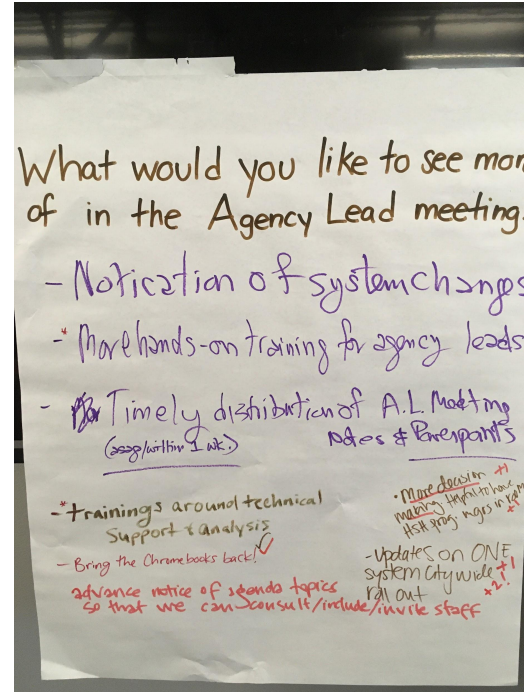 What would you like to see mor
of in the Agency Lead meeting
- Notication of system changes
-* More hands-on training for agency leads
- Timely distribution of A.L. Meeting
(asap/within 1 wk.) notes & Powerpoints
-* Trainings around technical
Support & analysis
- Bring the Chromebooks back! ✓
advance notice of agenda topics
so that we can consult/include/invite staff
• More decision +1
making. Helpful to have
HSH prog. mgrs in room
+1
- Updates on ONE
system City wide +1
roll out +2!